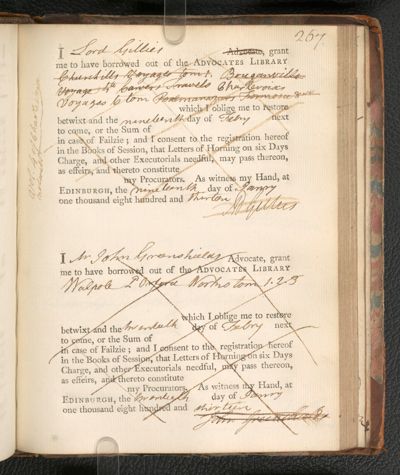 267
I Lord Gillies Advocate, grant
me to have borrowed out of the ADVOCATES LIBRARY
Churchills Voyages tom 1. Bougainvilles
Voyage 4to Carvers Travels Charlevoix
Voyages 6 tom Formosa 8vo
which I oblige me to restore
betwixt and the nineteenth day of Febry next
to come, or the Sum of
in case of Failzie; and I consent to the registration hereof
in the Books of Session, that Letters of Horning on six Days
Charge, and other Executorials needful, may pass thereon,
as effeirs, and thereto constitute
my Procurators. As witness my Hand, at
EDINBURGH, the nineteenth day of Janry
one thousand eight hundred and thirteen
Gillies
I Mr John Greenshields Advocate, grant
me to have borrowed out of the ADVOCATES LIBRARY
Walpole Ld Orford Works tom 1.2.3
which I oblige me to restore
betwixt and the twentieth day of Febry next
to come, or the Sum of
in case of Failzie; and I consent to the registration hereof
in the Books of Session, that Letters of Horning on six Days
Charge, and other Executorials needful, may pass thereon,
as effeirs, and thereto constitute
my Procurators. As witness my Hand, at
EDINBURGH, the twentieth day of Janry
one thousand eight hundred and thirteen
John Greenshields